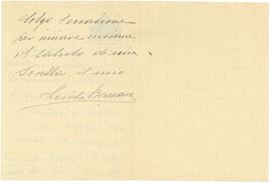 Colgo l'occasione
per inviare insieme
al saluto di mia
Sorella, il mio
Luisa Baccara